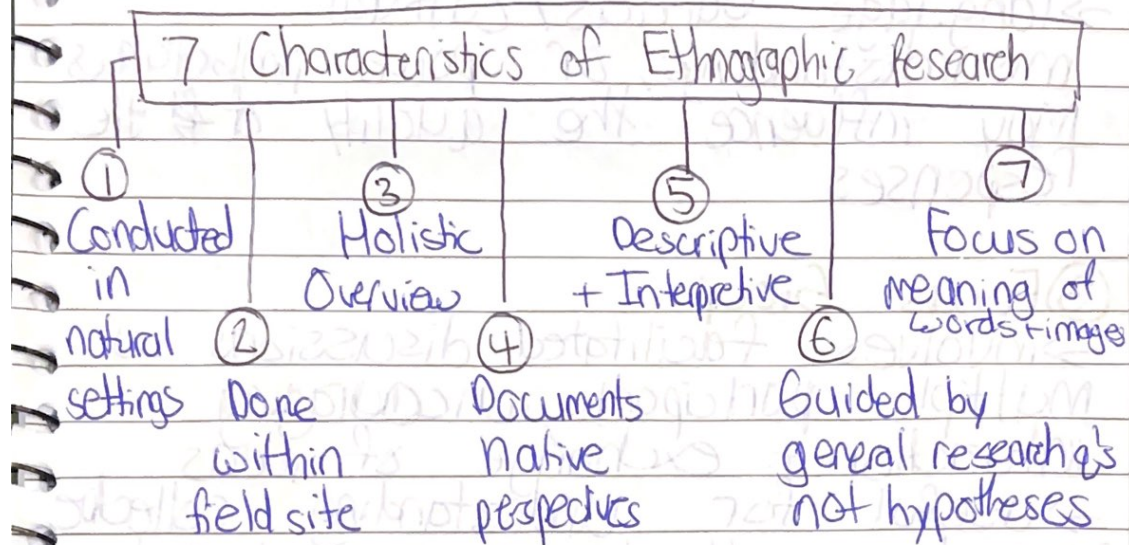 7 Characteristics of Ethnographic Research
①
Conducted
in
natural
settings
②
Done
within
field site
③
Holistic
Overview
④
Documents
native
perspectives
⑤
Descriptive
+ Interpretive
⑥
Guided by
general research q's
not hypotheses
⑦
Focus on
meaning of
words + images